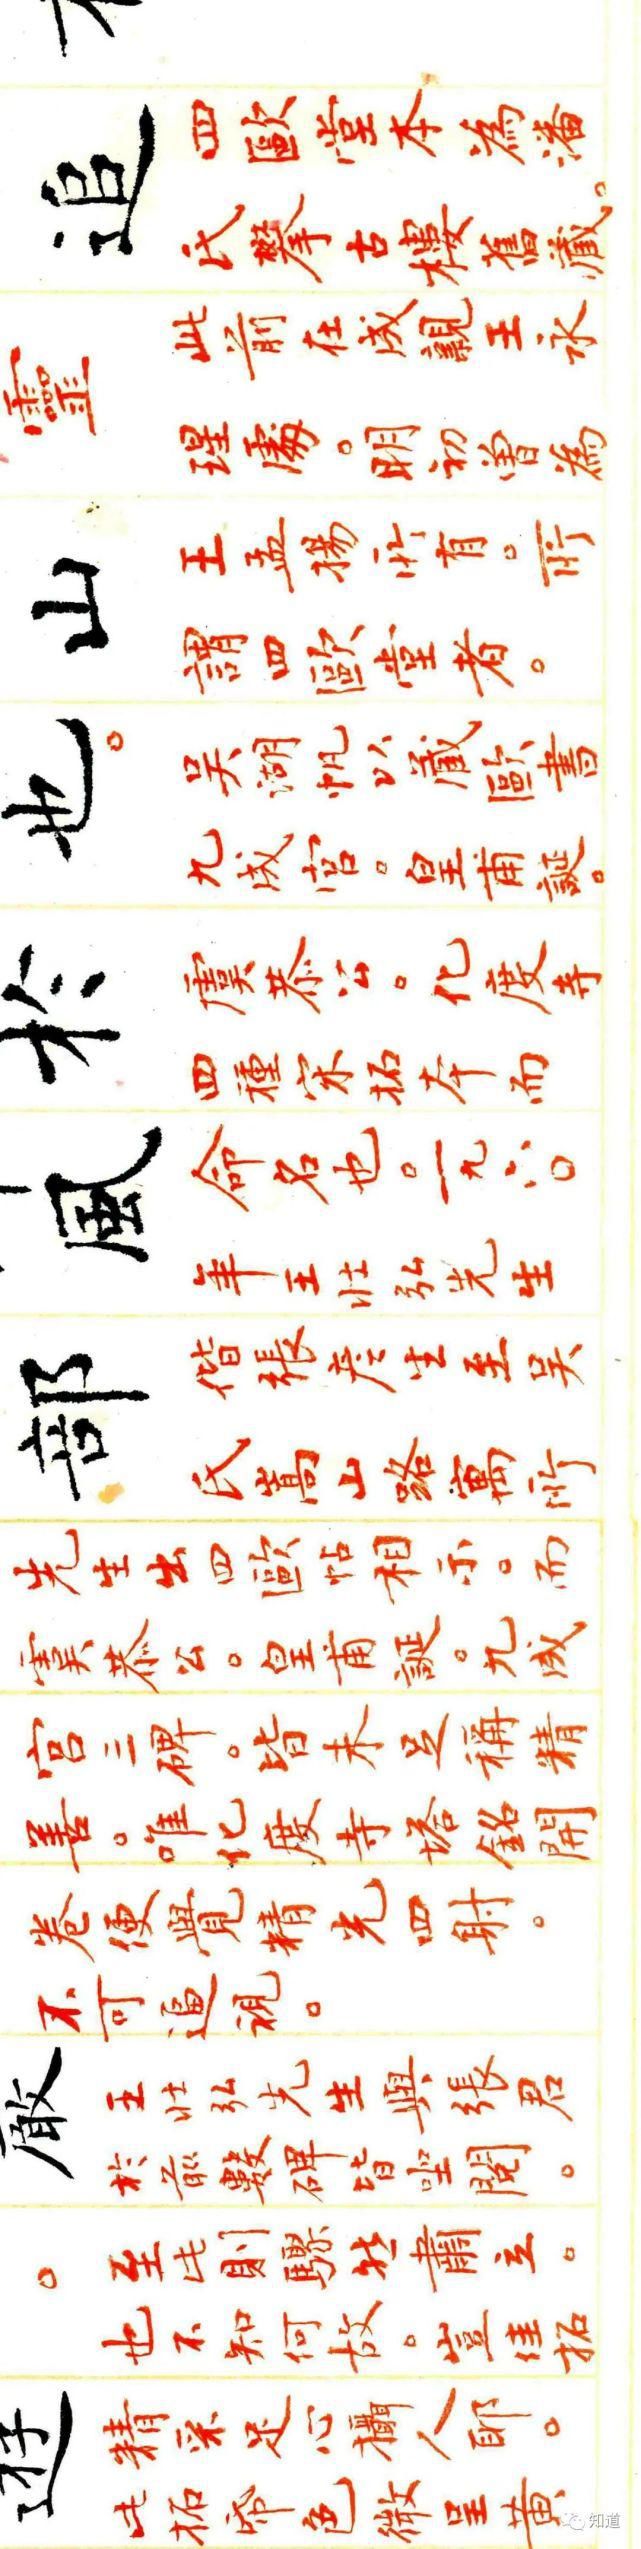 追
四歐堂本為潘
氏攀古樓舊藏。
靈
此前在成親王永
瑆處。明初曾為
山
王孟揚所有。所
謂四歐堂者。
也。
吳湖帆以藏歐書
九成宮。皇甫誕。
於
虞恭公。化度寺
四種宋拓本而
風
命名也。一九六〇
年王壯弘先生
部
偕張彦生至吳
氏嵩山路寓所
先生出四歐帖相示。而
虞恭公。皇甫誕。九成
宮三碑。皆未足稱精
善。唯化度寺塔銘開
卷便覺精光四射。
不可逼視。
王壯弘先生與張君
於前數碑皆坐閱。
至此則驟起肅立。
也不知何故。豈佳拓
遊
精采足以攝人耶。
此拓帋色微呈黃
知道